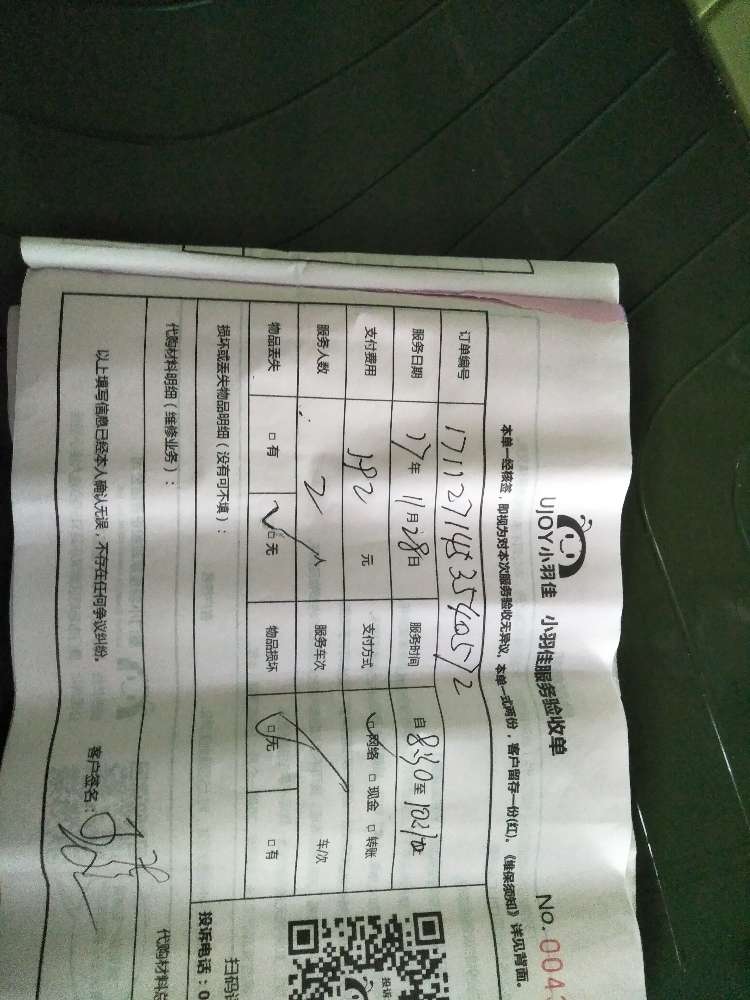 UJOY小羽佳 小羽佳服务验收单
No.004
本单一经核签，即视为对本次服务验收无异议，本单一式两份，客户留存一份(红)。《维保须知》详见背面。
订单编号
服务日期 17年 11月28日 服务时间 自 8:30 至
支付费用 元 支付方式 □网络 □现金 □转账
服务人数 2 人 服务车次 车/次
物品丢失 □有 □无 物品损坏 □无 □有
损坏或丢失物品明细（没有可不填）：
代购材料明细（维修业务）：
代购材料总
以上填写信息已经本人确认无误，不存在任何争议纠纷。
客户签名：
投诉
扫码
投诉电话：0